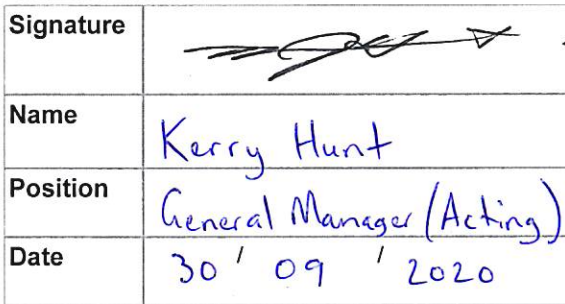 Signature
Name Kerry Hunt
Position General Manager (Acting)
Date 30 / 09 / 2020